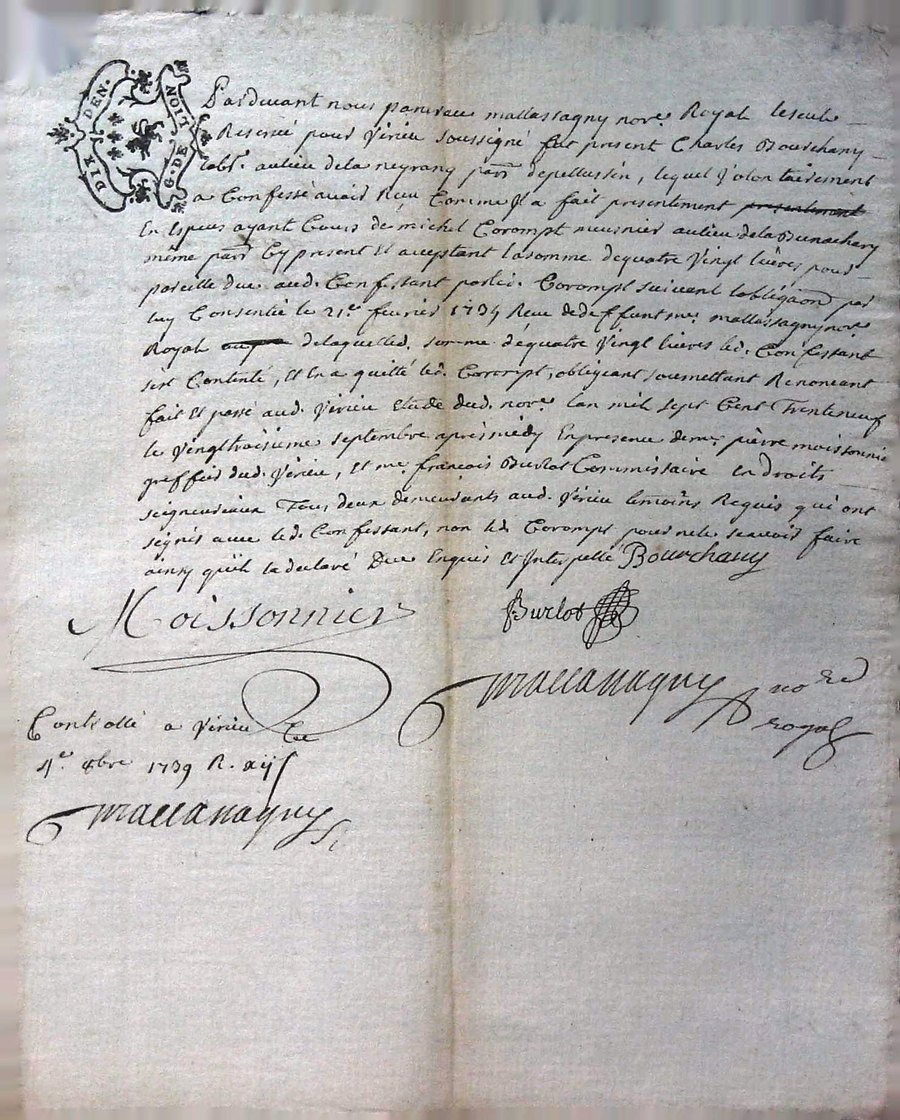 DIX DEN.
G. DE NOIT
Pardevant nous pancrace mallassagny nore. Royal le seul
Reservé pour Virieu soussigné fut present Charles Bourchany
labr. au lieu de la neyrany parr. de pellussin, lequel Volontairement
a Confessé avoir Reçu Comme Il a fait presentement presentement
En Especes ayant Cours de michel Corompt meusnier au lieu de la Bunachery
même parr. Cy present Et acceptant la somme de quatre Vingt livres pour
pareille due aud. Confessant par led. Corompt suivant lobligaon par
luy Consentie le 21e fevrier 1734 Recue de deffunt me. mallassagny nore
Royal de laquelle d. somme de quatre Vingt livres led. Confessant
sest Contenté, Et En a quitté led. Corompt, obligeant soumettant Renonceant
fait Et passé aud. Virieu Etude dud. nore. Lan mil sept Cent Trenteneuf
le Vingttroisieme septembre apres midy En presence de me. pierre moissonnie
greffier dud. Virieu, Et me. francois Burlot Commissaire en Droits
seigneuriaux Tous deux demeurants aud. Virieu temoins Requis qui ont
signés avec led. Confessant, non led. Corompt pour ne le scavoir faire
ainsy quil la declaré Due Enquis Et Interpellé Bourchany
Moissonnier
Burlot
Mallassagny nore
royal
Controllé a Virieu Le
4e. 8bre 1739 R.
Mallassagny